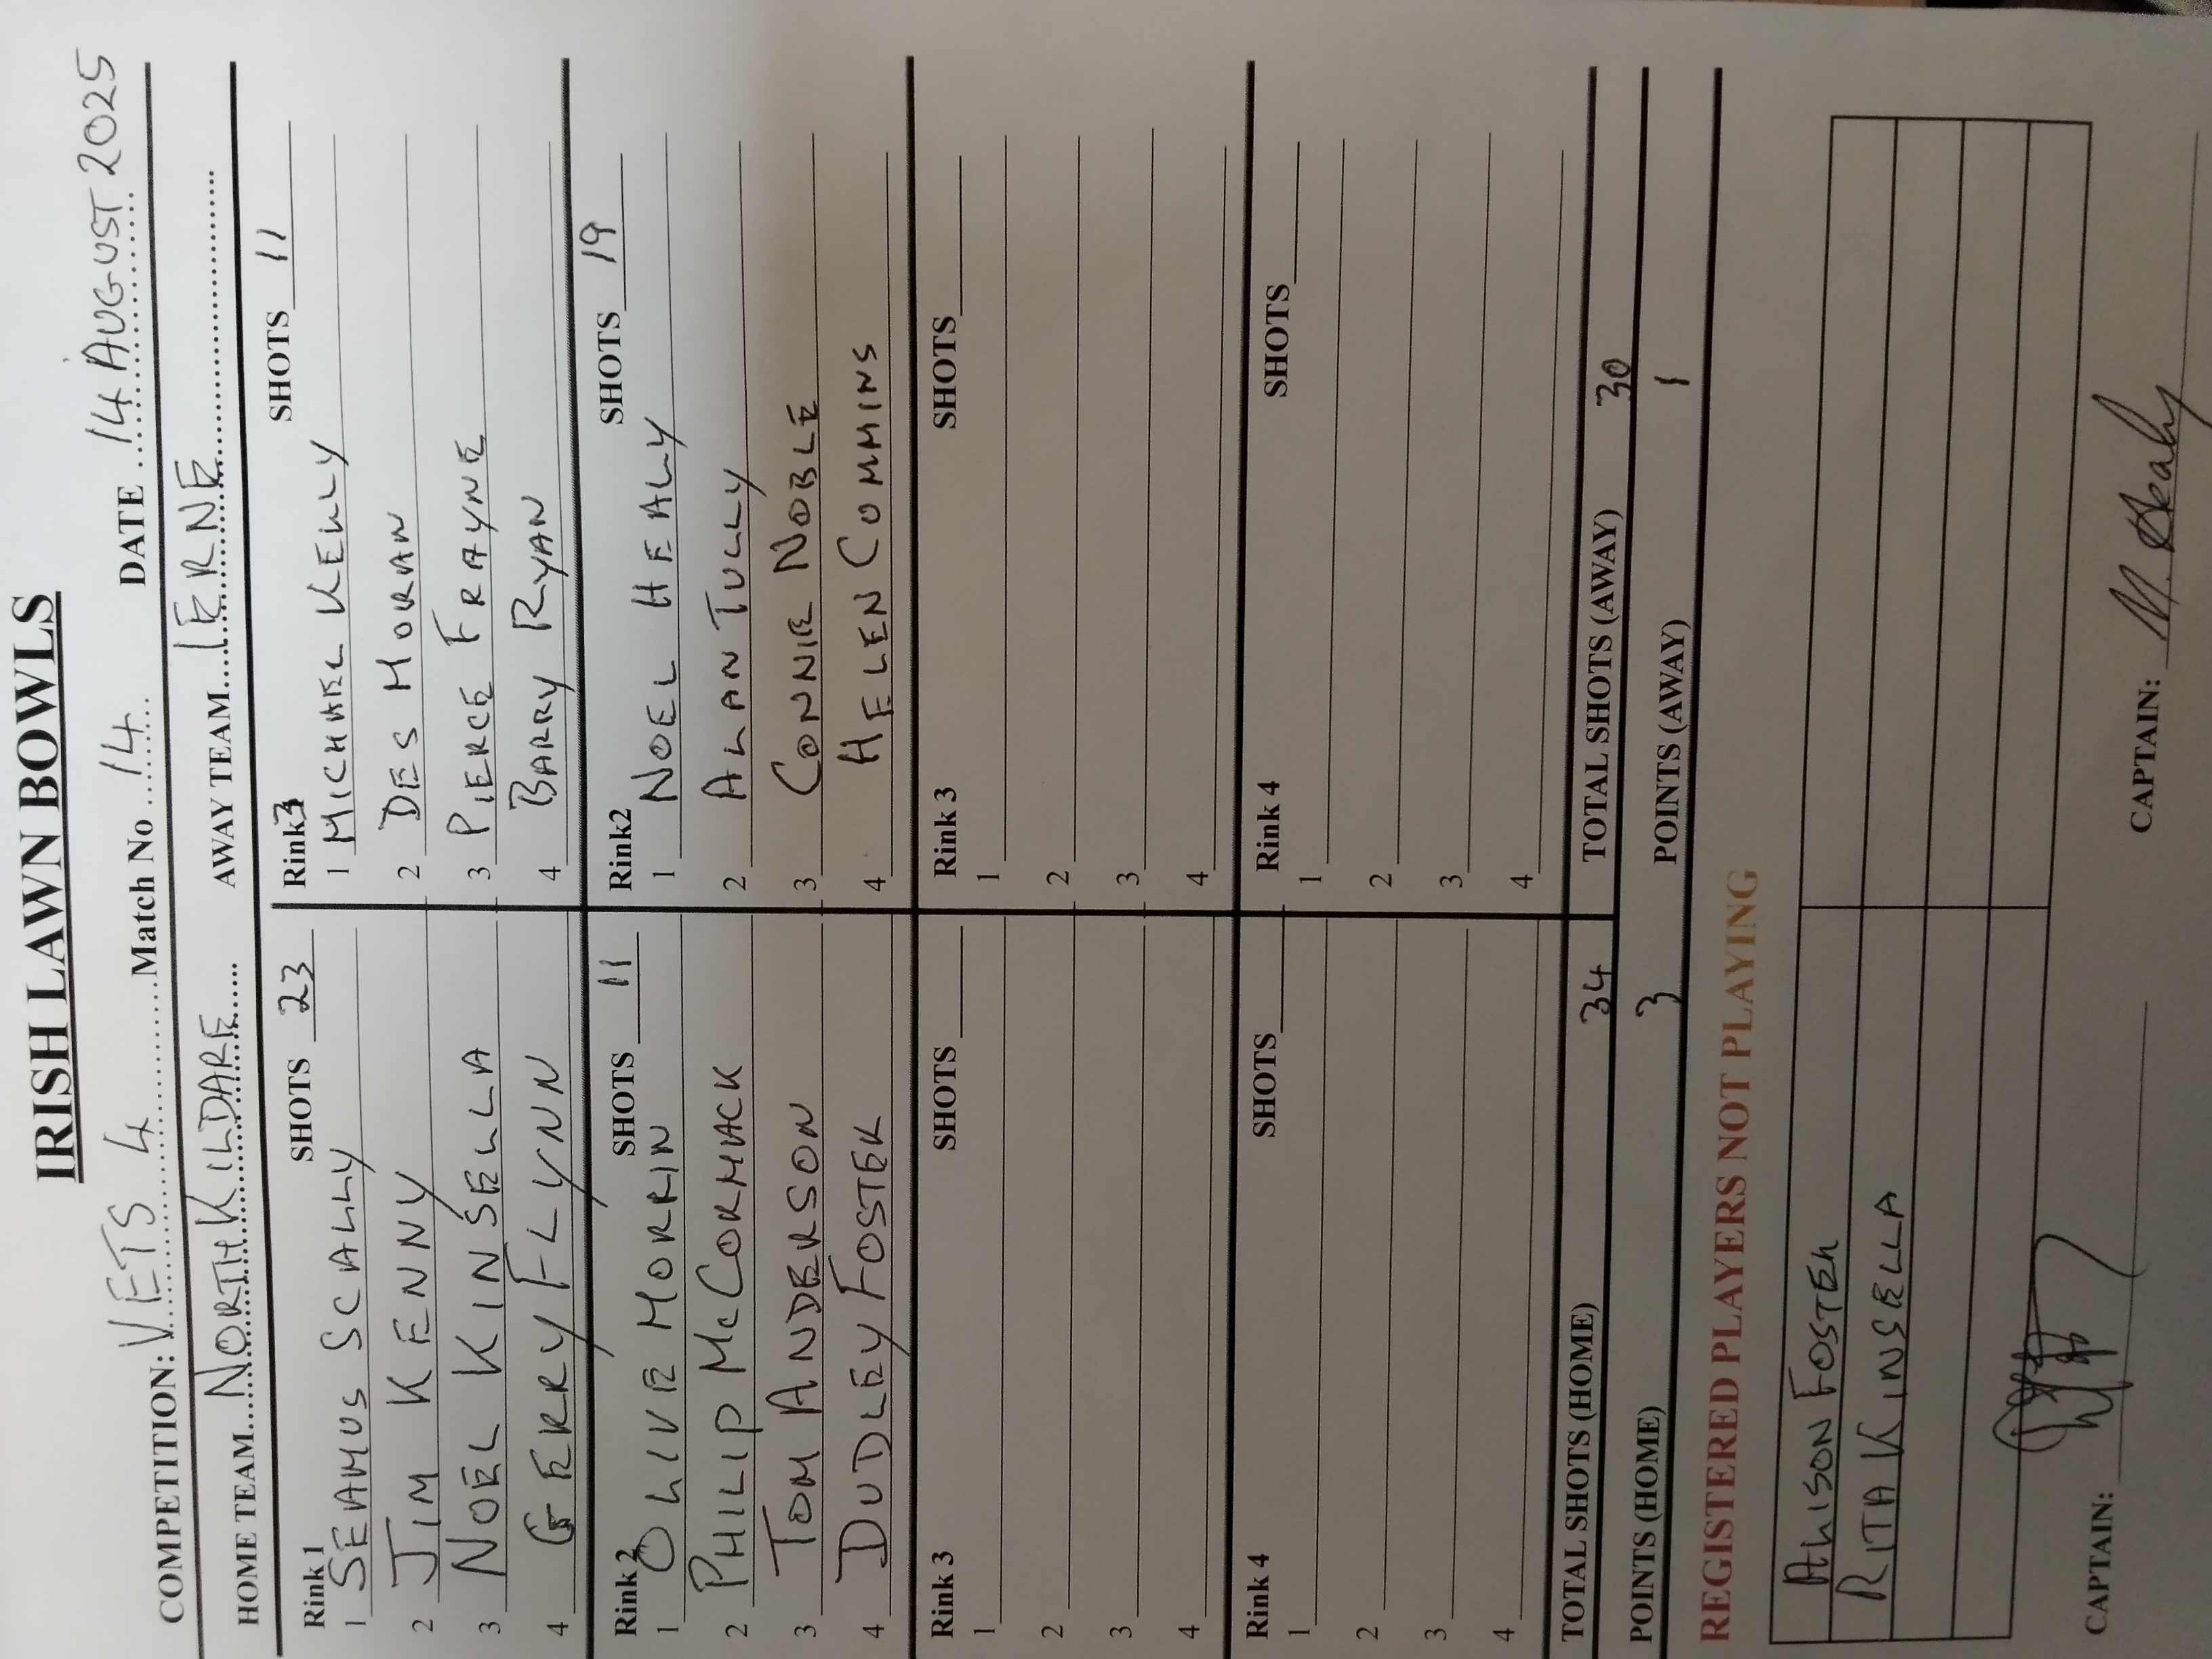 IRISH LAWN BOWLS
COMPETITION: VETS 4 Match No 14 DATE 14 AUGUST 2025
HOME TEAM NORTH KILDARE AWAY TEAM IERNE
Rink 1 SHOTS 23
1 SEAMUS SCALLY
2 JIM KENNY
3 NOEL KINSELLA
4 GERRY FLYNN
Rink 3 SHOTS 11
1 MICHAEL KELLY
2 DES MORAN
3 PIERCE FRAYNE
4 BARRY RYAN
Rink 2 SHOTS 11
1 OLIVE MORRIN
2 PHILIP McCORMACK
3 TOM ANDERSON
4 DUDLEY FOSTER
Rink2 SHOTS 19
1 NOEL HEALY
2 ALAN TULLY
3 CONNIE NOBLE
4 HELEN COMMINS
Rink 3 SHOTS
1
2
3
4
Rink 3 SHOTS
1
2
3
4
Rink 4 SHOTS
1
2
3
4
Rink 4 SHOTS
1
2
3
4
TOTAL SHOTS (HOME) 34 TOTAL SHOTS (AWAY) 30
POINTS (HOME) 3 POINTS (AWAY) 1
REGISTERED PLAYERS NOT PLAYING
ALISON FOSTER
RITA KINSELLA
CAPTAIN: CAPTAIN: M. Healy